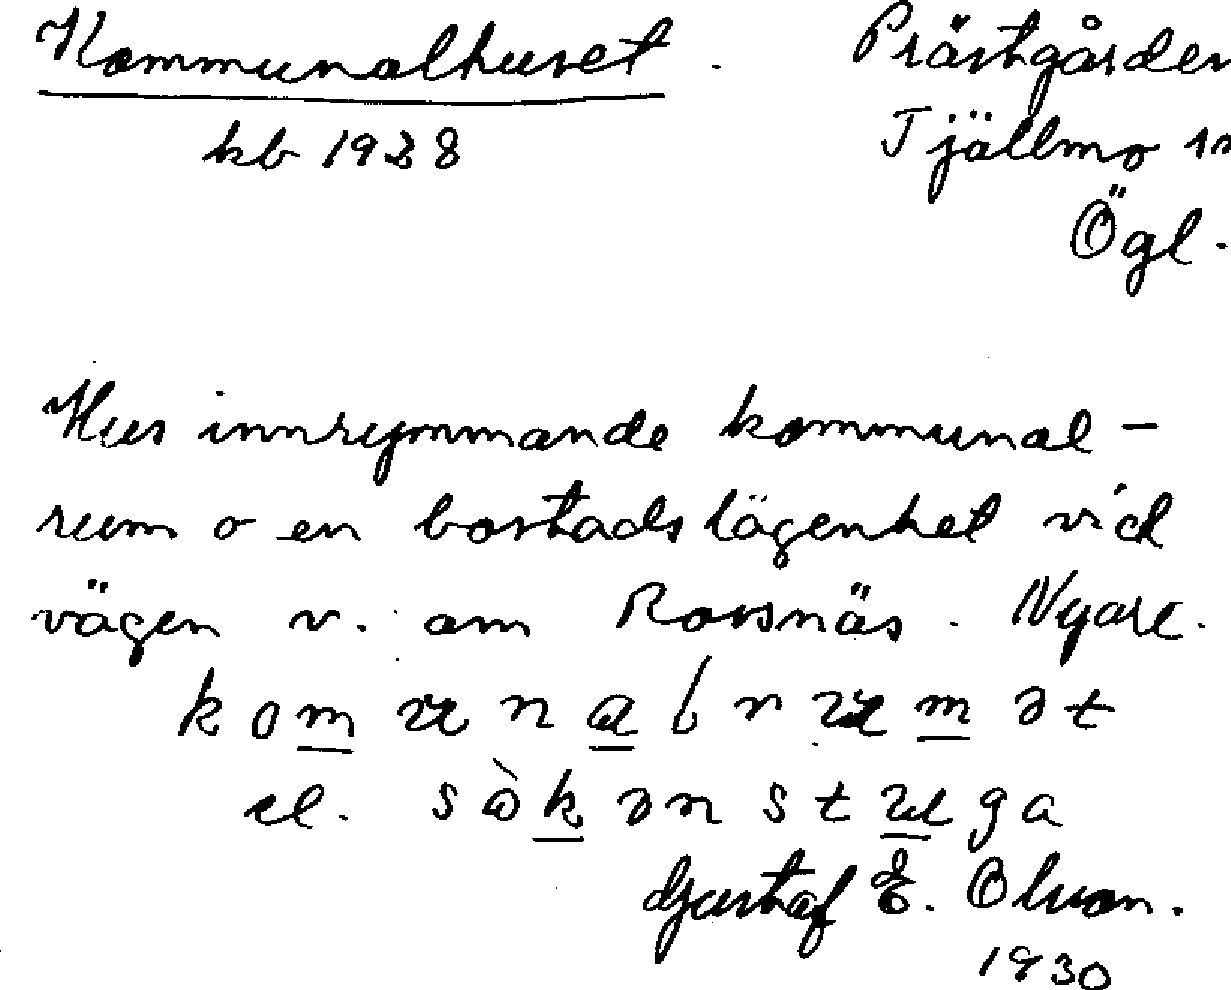 Kommunalhuset. Prästgården
kb 1938 Tjällmo sn
Ögl.
Hus innrymmande kommunal-
rum o en bostadslägenhet vid
vägen v. om Rossnäs. Nyare.
el.
Gustaf E. Olsson.
1930